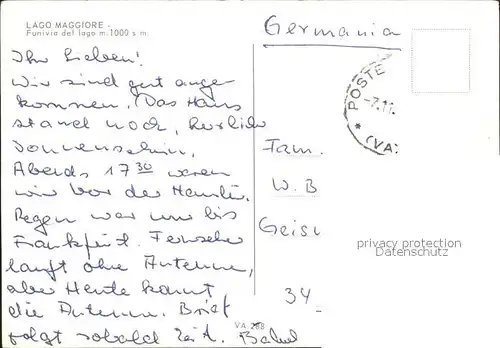 LAGO MAGGIORE -
Funivia del lago m. 1000 s. m.
Germania
Ihr Lieben!
Wir sind gut ange
kommen. Das Haus
stand noch, herrlicher
Sonnenschein.
Abends 17 30 waren
wir vor der
Regen war nur bis
Frankfurt. Fernseher
läuft ohne Antenne,
aber Heute kommt
die Antenne. Brief
folgt sobald Zeit.
POSTE
(VA)
Fam.
W. B
Geisu
34
privacy protection
Datenschutz
VA 288